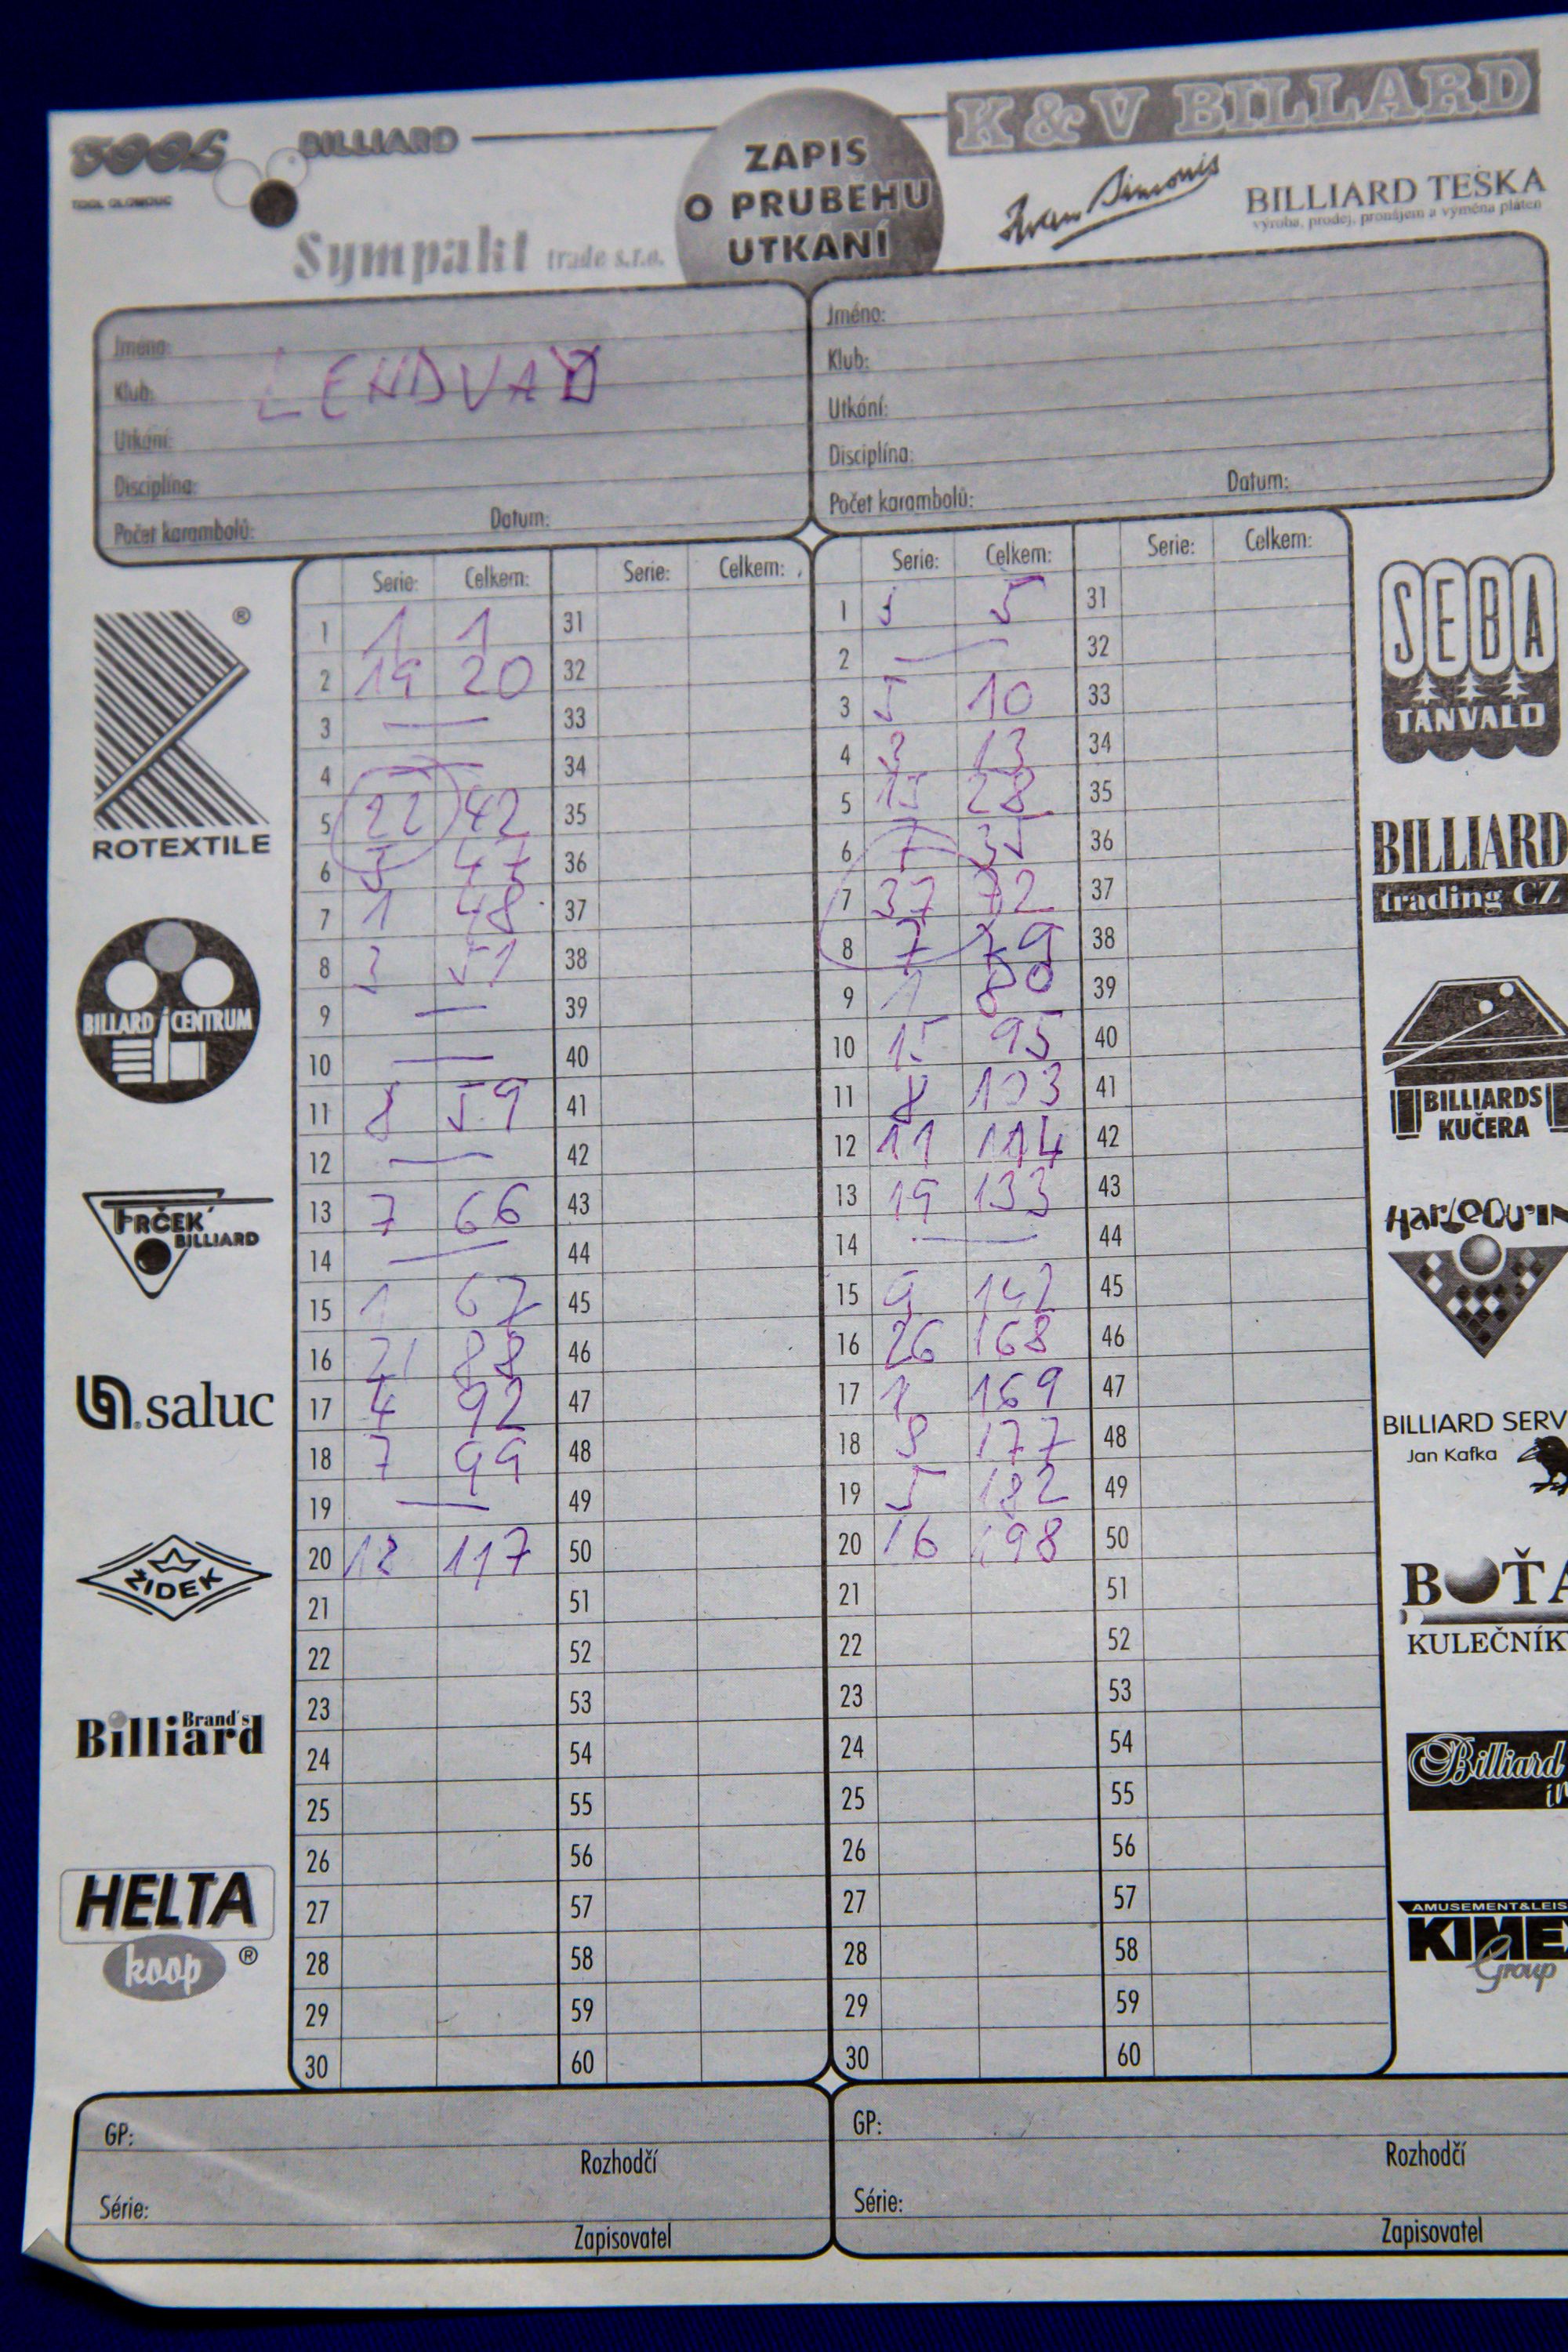 TOOL BILLIARD
TOOL OLOMOUC
Sympakt trade s.r.o.
ZÁPIS
O PRUBĚHU
UTKÁNÍ
K & V BILLARD
Iwan Simonis
BILLIARD TEŠKA
výroba, prodej, pronájem a výměna pláten
Jméno:
Klub:
LENDVAY
Utkání:
Disciplína:
Počet karambolů: Datum:
Jméno:
Klub:
Utkání:
Disciplína:
Počet karambolů: Datum:
Serie: Celkem: Serie: Celkem:
1 1 1 31
2 19 20 32
3 — 33
4 — 34
5 22 42 35
6 5 47 36
7 1 48 37
8 3 51 38
9 — 39
10 — 40
11 8 59 41
12 — 42
13 7 66 43
14 — 44
15 1 67 45
16 21 88 46
17 4 92 47
18 7 99 48
19 — 49
20 18 117 50
21 51
22 52
23 53
24 54
25 55
26 56
27 57
28 58
29 59
30 60
Serie: Celkem: Serie: Celkem:
1 5 5 31
2 — 32
3 5 10 33
4 3 13 34
5 15 28 35
6 7 35 36
7 37 72 37
8 7 79 38
9 1 80 39
10 15 95 40
11 8 103 41
12 11 114 42
13 19 133 43
14 — 44
15 9 142 45
16 26 168 46
17 1 169 47
18 8 177 48
19 5 182 49
20 16 198 50
21 51
22 52
23 53
24 54
25 55
26 56
27 57
28 58
29 59
30 60
®
ROTEXTILE
BILLARD CENTRUM
FRČEK
BILLIARD
saluc
ŽIDEK
Brand's
Billiard
HELTA
koop ®
SEBA
TANVALD
BILLIARD
trading CZ
BILLIARDS
KUČERA
HARLEQUIN
BILLIARD SERV
Jan Kafka
BOŤA
KULEČNÍK
Billiard
AMUSEMENT&LEIS
KIMEX
Group
GP:
Rozhodčí
Série:
Zapisovatel
GP:
Rozhodčí
Série:
Zapisovatel